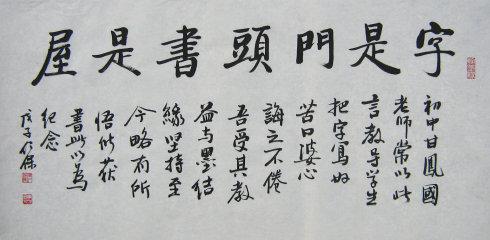 字是門頭書是屋
初中甘鳳國
老師常以此
言教导学生
把字寫好
苦口婆心
誨之不倦
吾受其教
益与墨结
緣坚持至
今略有所
悟此茯
書此以為
纪念
戊子仁傑